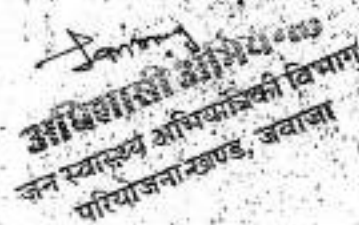 अधिशाषी अभियन्ता
जन स्वास्थ्य अभियांत्रिकी विभाग
परियोजना खण्ड, जवाजा